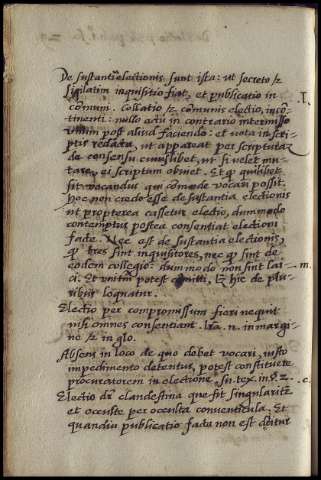 De sustantia electionis sunt ista: ut secreto &
sigilatim inquisitio fiat, et publicatio in
comuni. Collatio & comunis electio, incõ-
tinenti: nullo actu in contrario intermisso
unum post aliud faciendo: et vota in scri-
ptis redacta, ut appareat per scripturã
de consensu cuiuslibet, ut si velit mu-
tare, ei scriptum obviet. Et q quilibet
sit vocandus qui comode vocari possit.
hoc non credo esse de sustantia electionis
ut propterea cassetur electio, dummodo
contemptus postea consentiat electioni
facte. Nec est de sustantia electionis,
q tres sint inquisitores, nec q sint de
eodem collegio: dummodo non sint lai-
ci. Et unitas potest omitti, & hic de plu-
ribus loquatur.
Electio per compromissum fiori nequit
nisi omnes consentiant. in margi-
ne & in glo.
Absens in loco de quo debet vocari, iusto
impedimento detentus, potest constituere
procuratorem in electione.
Electio dr clandestina que fit singulariter
et occulte per occulta conventicula. Et
quandiu publicatio facta non est dicitur